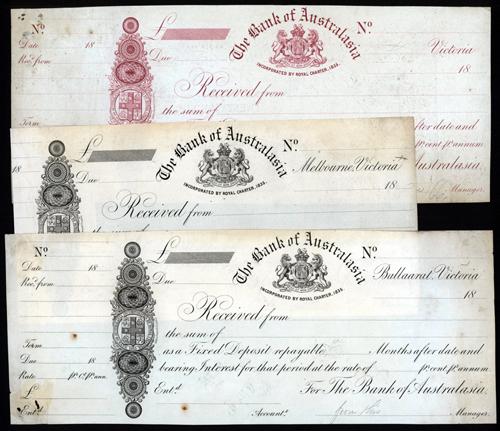 Nº
£
The Bank of Australasia
Nº
Date 18
Due
INCORPORATED BY ROYAL CHARTER, 1835.
Victoria
Rec.d from
18
Received from
the sum of
Term
after date and
pr. cent. pr. annum
Australasia.
Manager.
£
The Bank of Australasia
Nº
18
Due
INCORPORATED BY ROYAL CHARTER, 1835.
Melbourne, Victoria
18
Received from
Nº
£
The Bank of Australasia
Nº
Date 18
Due
INCORPORATED BY ROYAL CHARTER, 1835.
Ballaarat, Victoria
Rec.d from
18
Received from
the sum of
Term
as a Fixed Deposit repayable Months after date and
Due 18
bearing Interest for that period at the rate of pr. cent. pr. annum
Rate pr. Ct. pr. Ann.
£
Ent.d
For The Bank of Australasia.
Ent.d
Account.t
Manager.